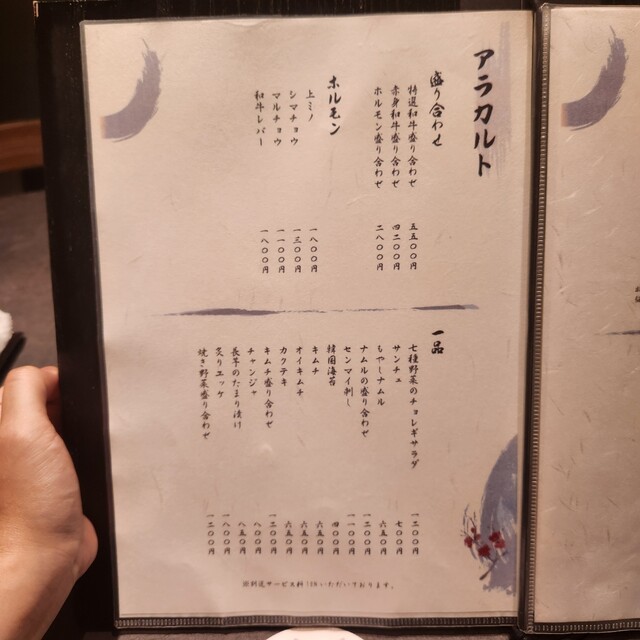 アラカルト
盛り合わせ
特選和牛盛り合わせ 五五〇〇円
赤身和牛盛り合わせ 四二〇〇円
ホルモン盛り合わせ 二八〇〇円
ホルモン
上ミノ 一八〇〇円
シマチョウ 一三〇〇円
マルチョウ 一一〇〇円
和牛レバー 一八〇〇円
一品
七種野菜のチョレギサラダ 一二〇〇円
サンチュ 七〇〇円
もやしナムル 六五〇円
ナムルの盛り合わせ 一二〇〇円
センマイ刺し 一一〇〇円
韓国海苔 四〇〇円
キムチ 六五〇円
オイキムチ 六五〇円
カクテキ 六五〇円
キムチ盛り合わせ 一二〇〇円
チャンジャ 八〇〇円
長芋のたまり漬け 八五〇円
炙りユッケ 一八〇〇円
焼き野菜盛り合わせ 一二〇〇円
※別途サービス料 いただいております。